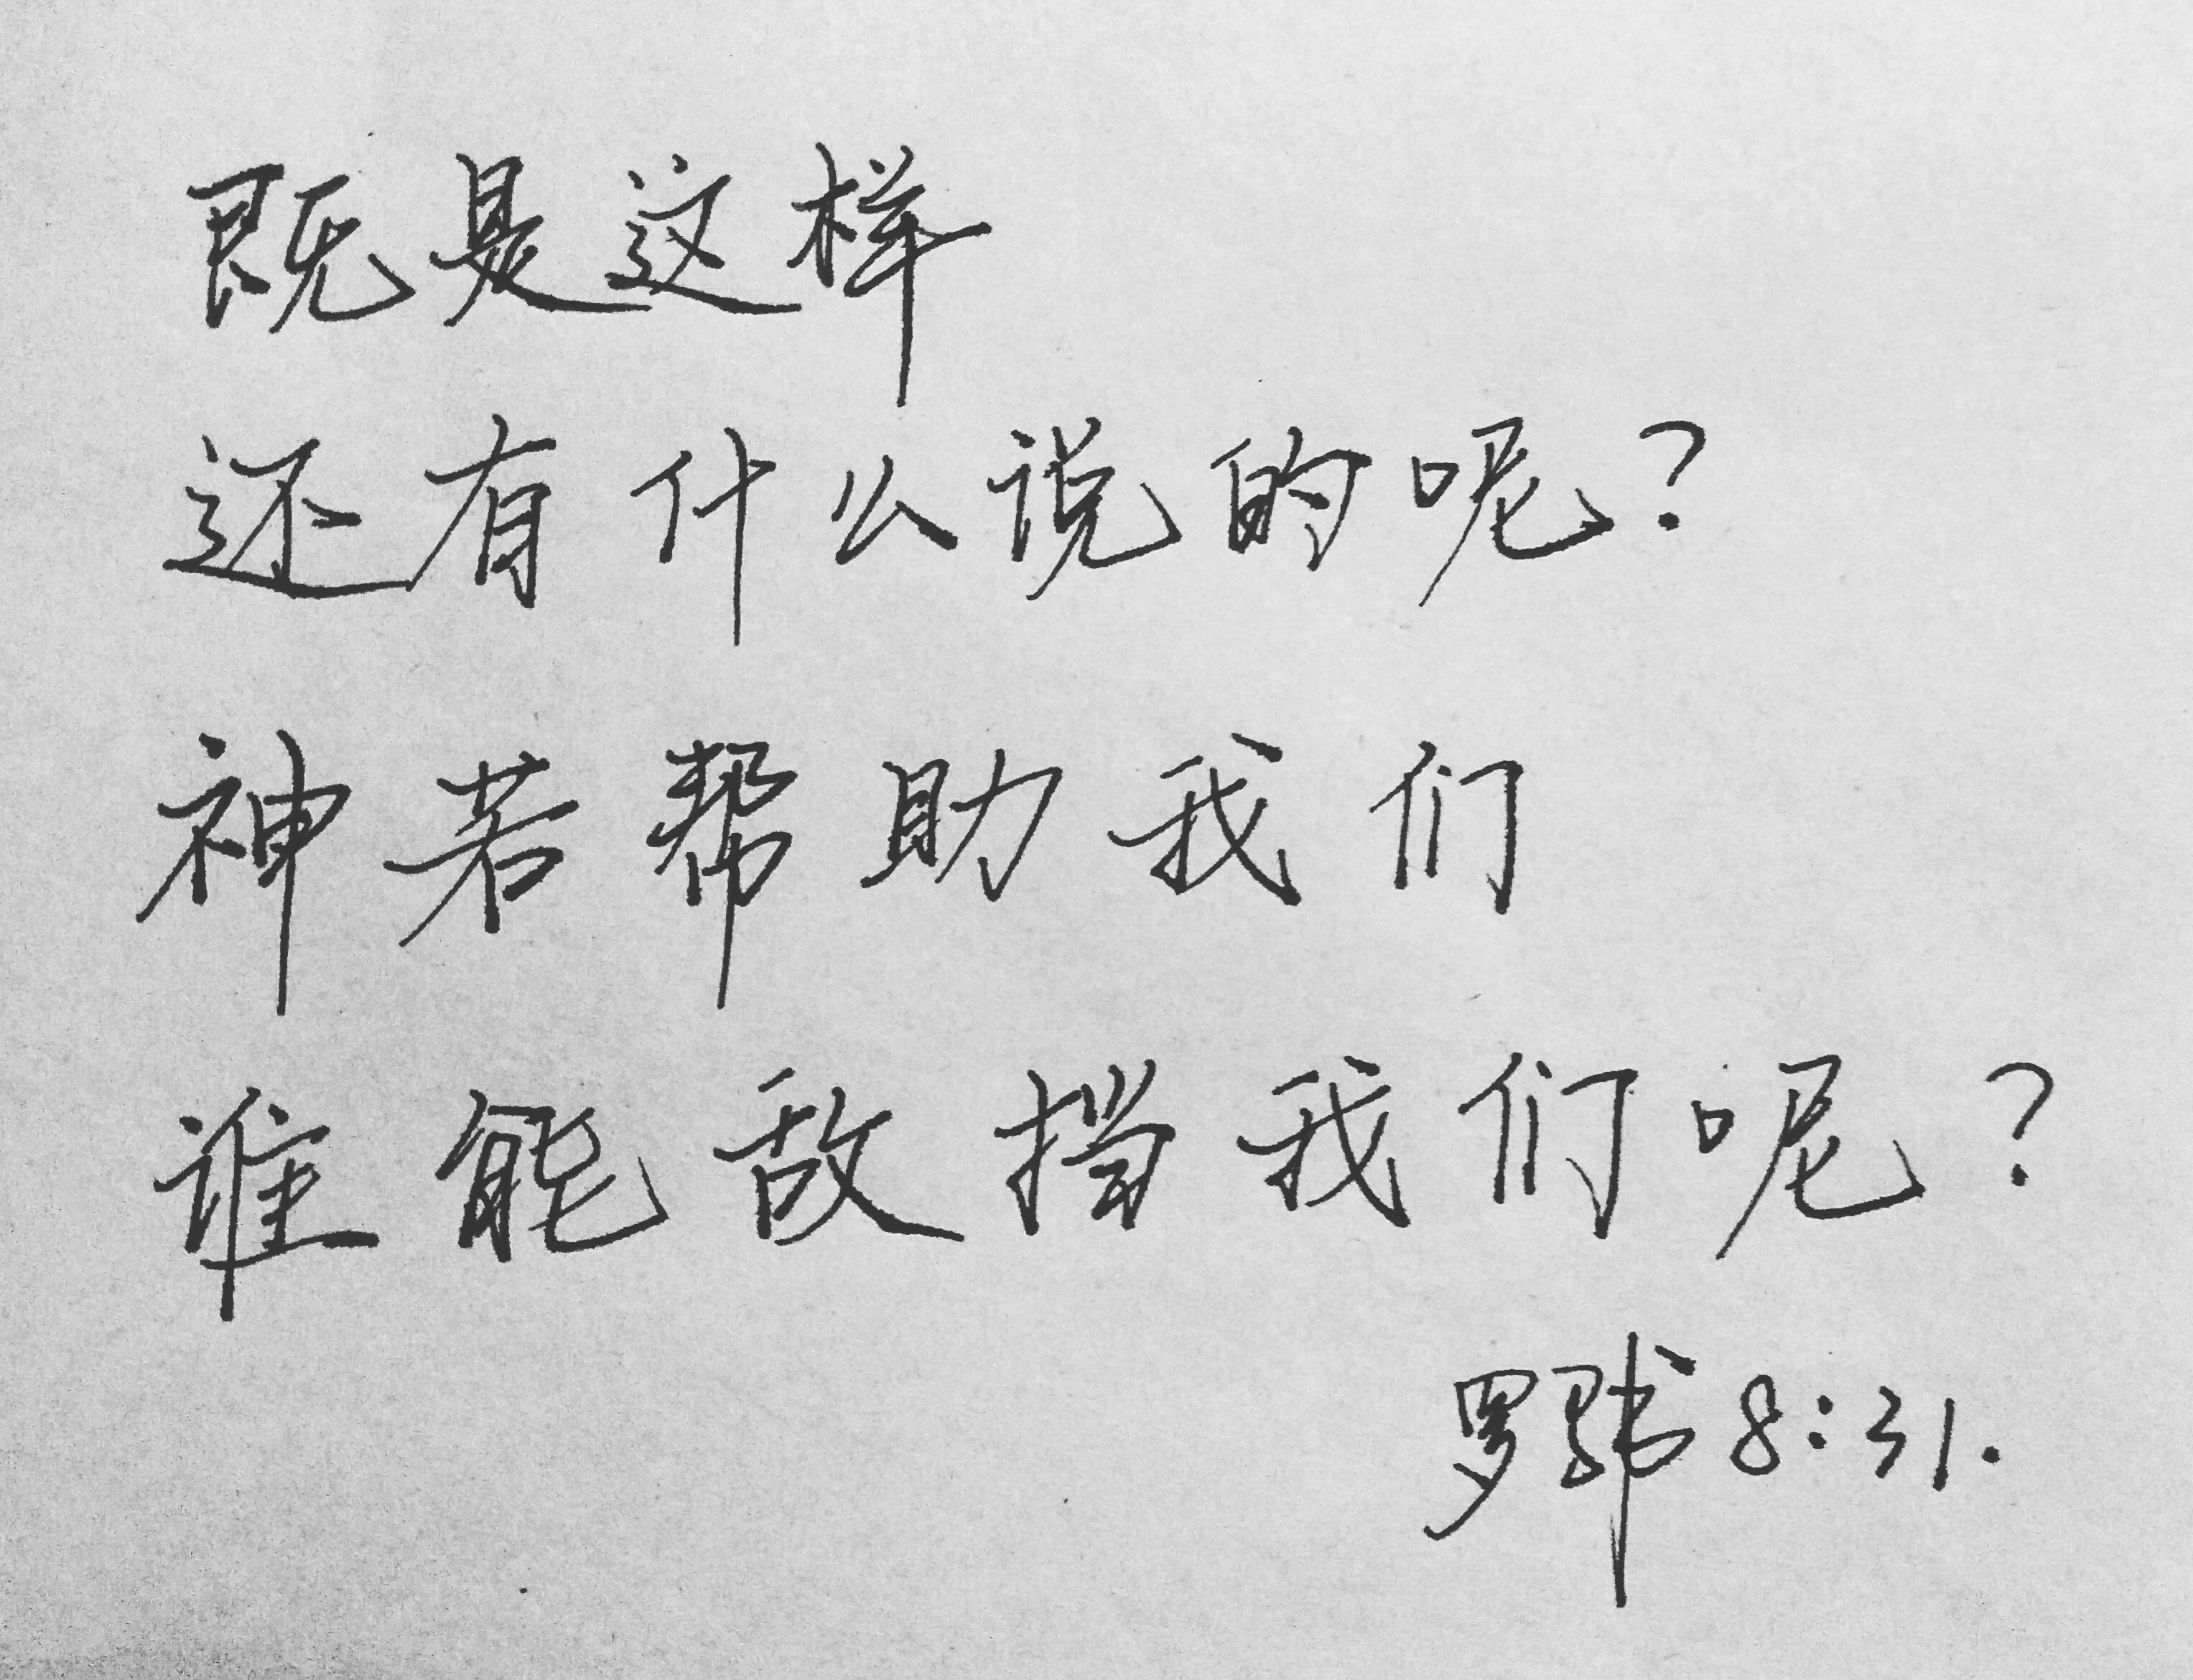 既是这样
还有什么说的呢？
神若帮助我们
谁能敌挡我们呢？
罗马书 8:31.